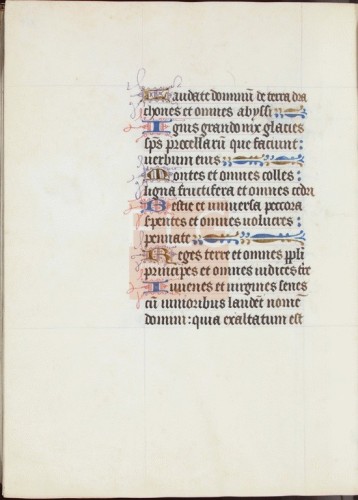 Laudate dominū de terra dra
chones et omnes abyssi
Ignis grando nix glacies
sps procellarū que faciunt
uerbum eius
Montes et omnes colles:
ligna fructifera et omnes cedri
Bestie et uniuersa peccora
serpentes et omnes uolucres
pennate
Reges terre et omnes ppli
principes et omnes iudices tre
Iuuenes et uirgines senes
cū iunioribus laudēt nomē
domini: quia exaltatum est